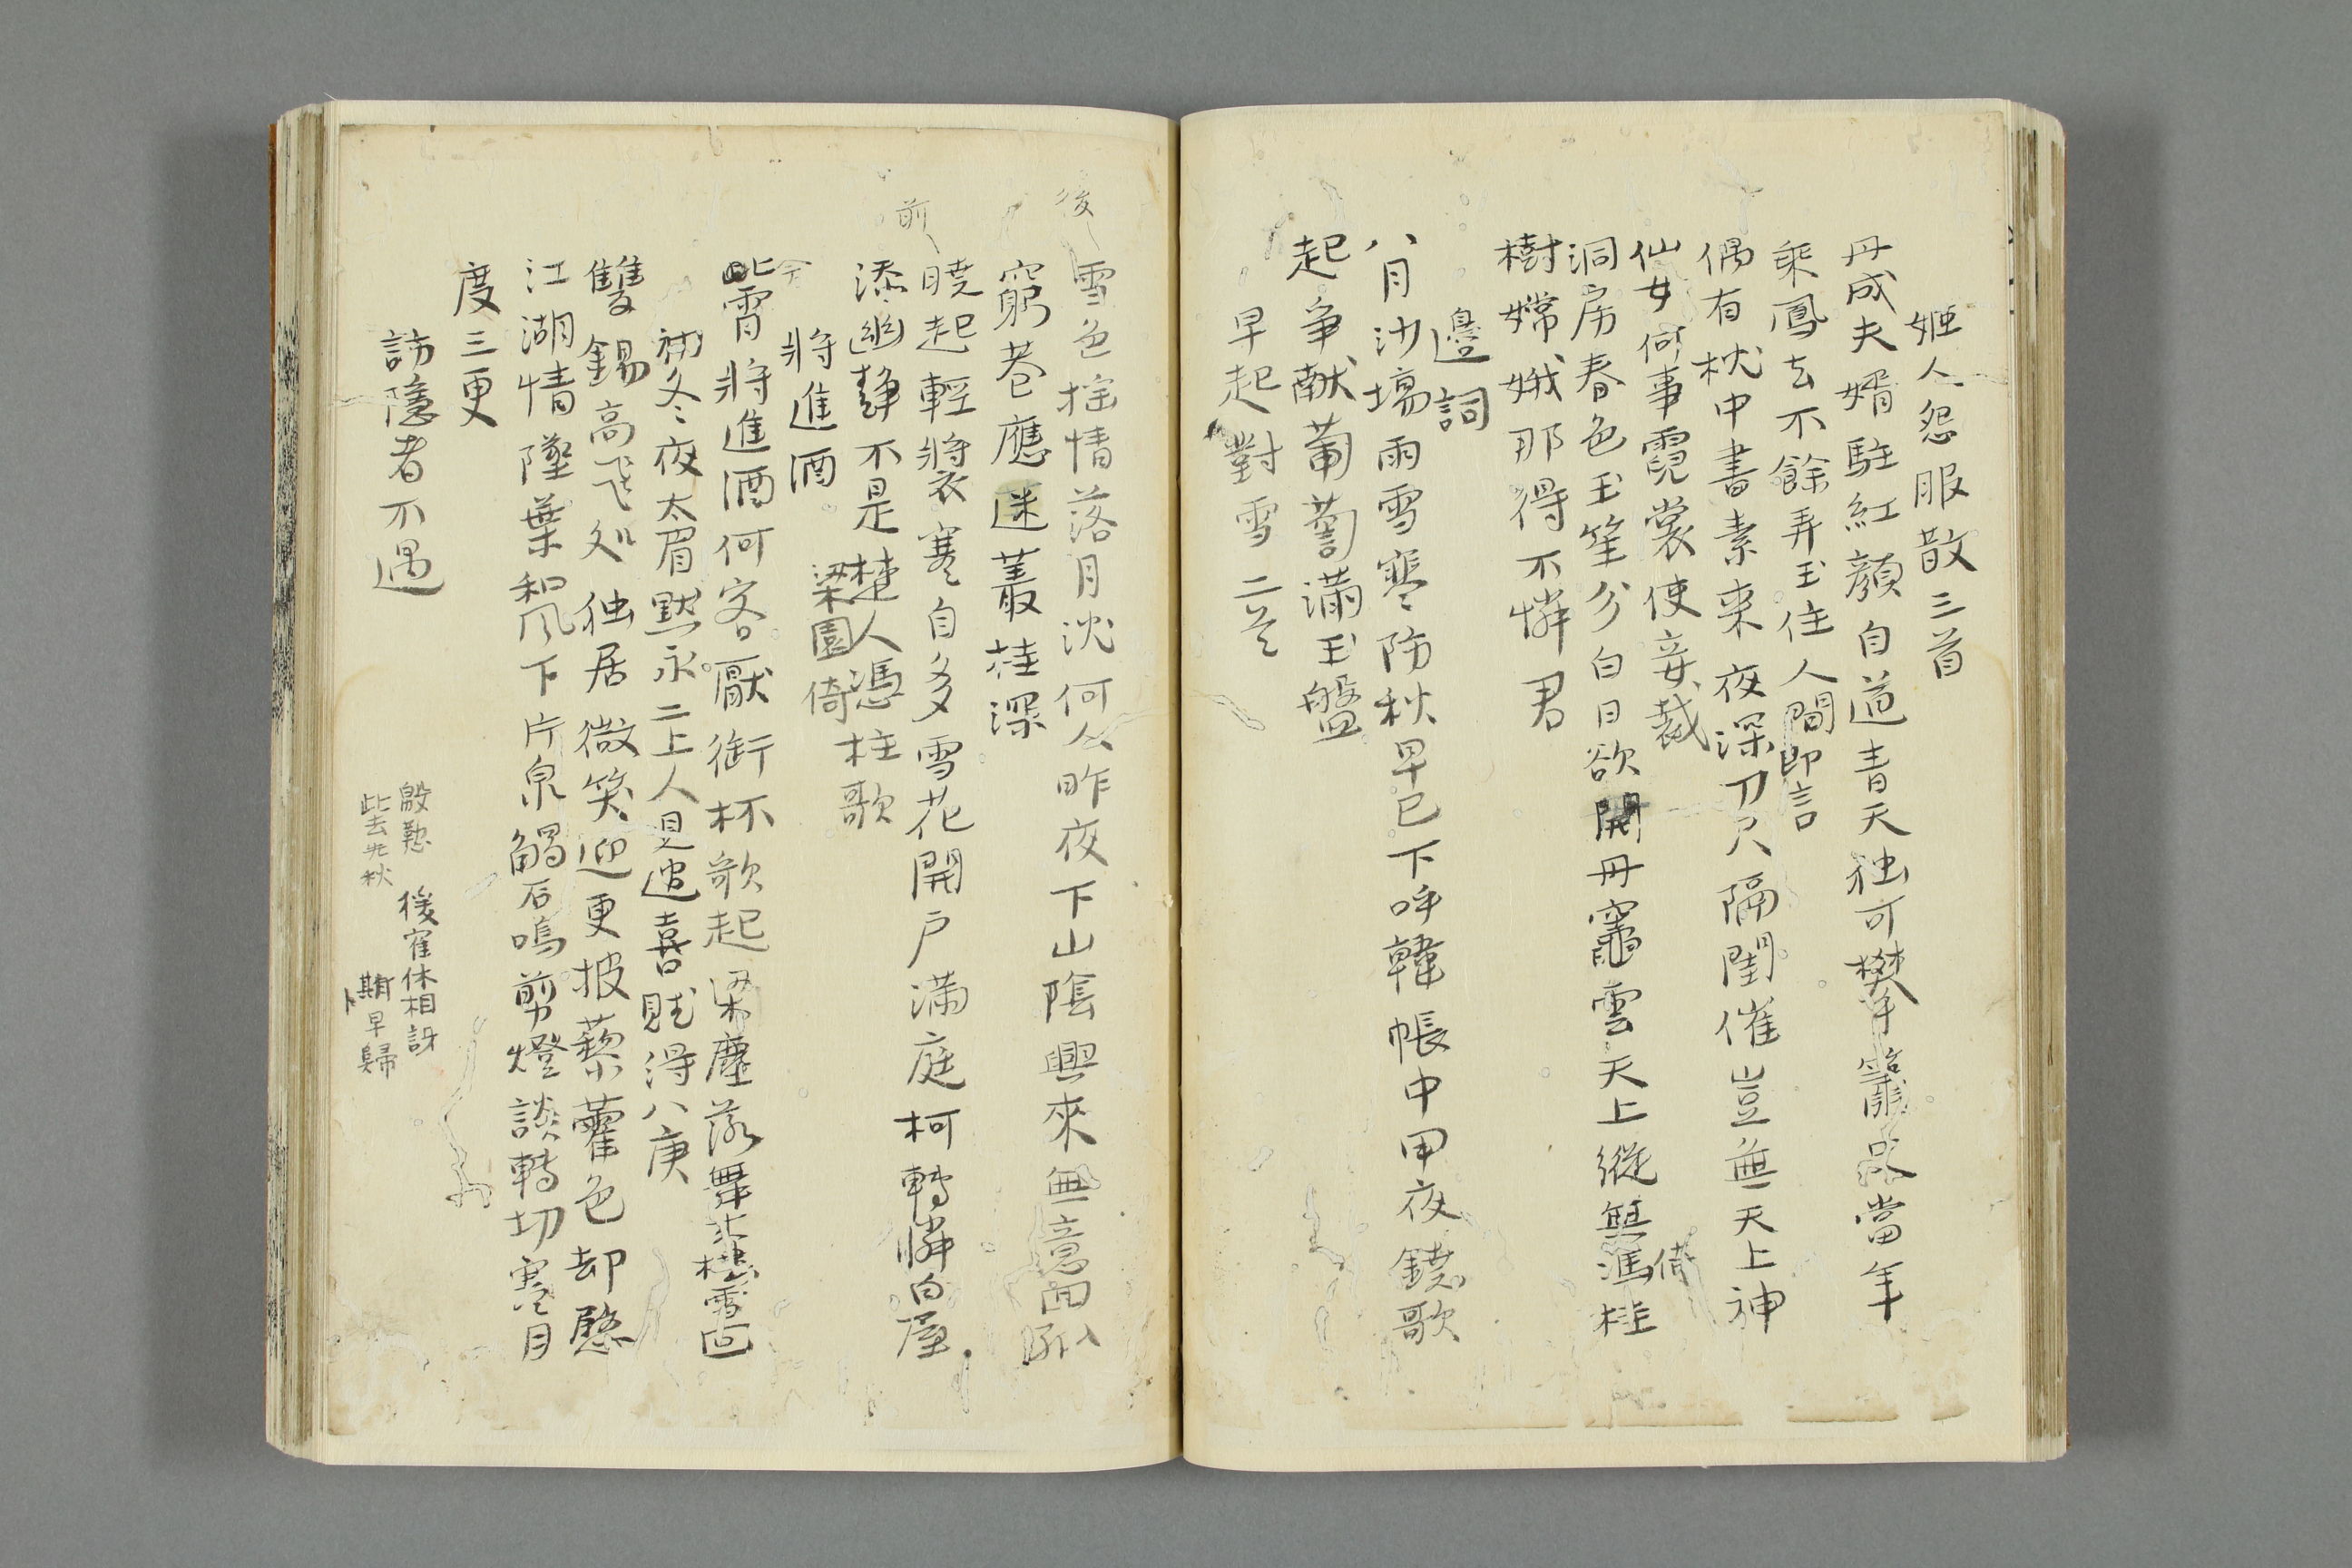 姬人怨服散二首
丹成夫婿駐紅顏自道青天独可攀簫当年
乘鳳去不餘弄玉住人間即言
偶有枕中書素来夜深刀尺隔閨催豈無天上神
仙女何事霓裳使妾裁
洞房春色玉笙分白日欲開丹竈雲天上縱無馮桂
倚
樹嫦娥那得不憐君
邊詞
八月沙塲雨雪寒防秋早已下呼韓帳中甲夜鐃歌
起爭献葡萄滿玉盤
早起對雪二首
後
雪色搖情落月沈何人昨夜下山陰興來無意回
窮巷應迷叢桂深
前
曉起輕裘寒自多雪花開戶満庭柯轉憐白屋
添幽靜不是楚人憑柱歌
梁園倚
將進酒
今
此宵將進酒何客厭銜杯歌起梁塵落舞雪回
初冬夜太眉黙永二上人見過喜賦得八庚
雙錫高飛処独居微笑迎更披藜藿色却慇
江湖情墜葉和风下片泉觸石鳴剪燈談轉切寒月
度三更
訪隱者不遇
殷懃
後寉休相訝
此去
秋
期早歸